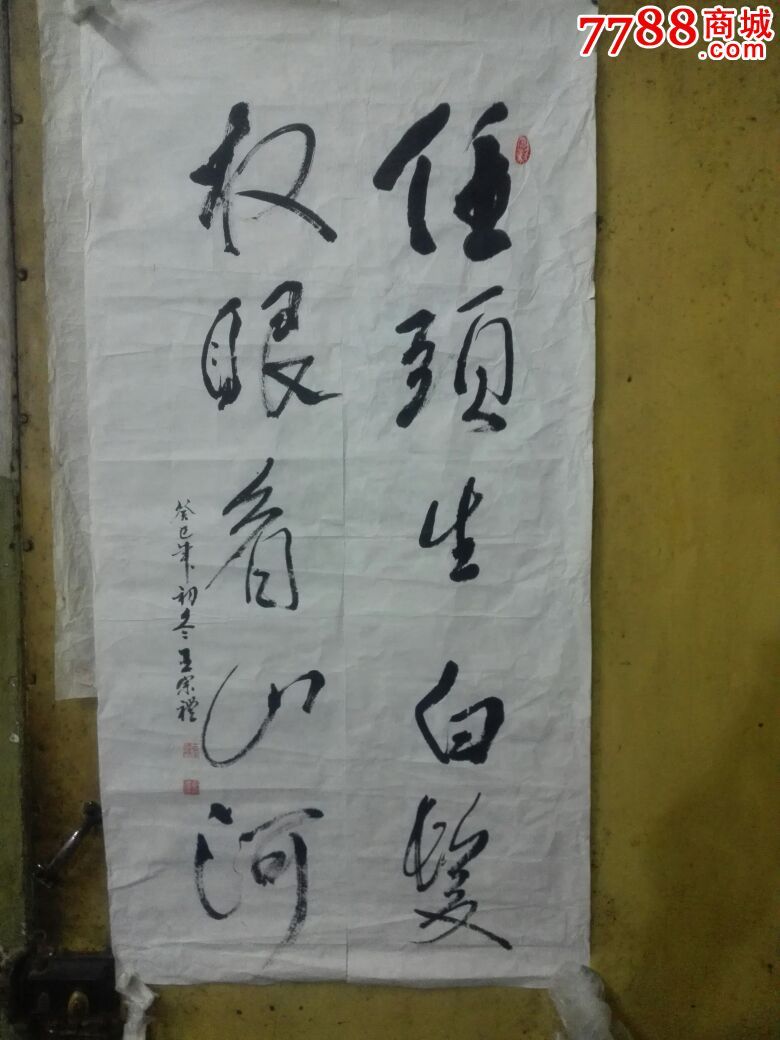 7788商城
.com
任頭生白髮
放眼看山河
癸巳年初冬王宗禮